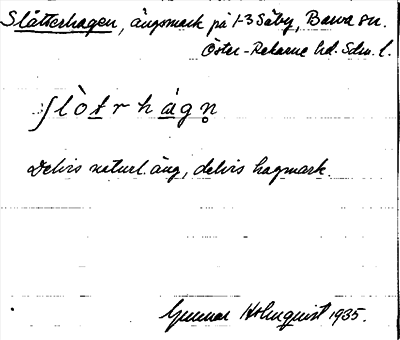 Slåtterhagen, ängsmark på 1-3 Säby, Barva sn.
Öster-Rekarne hd. Sdm. l.
ʃlòt̲r hág̲n̥
Delvis naturl. äng, delvis hagmark.
Gunnar Holmquist 1935.